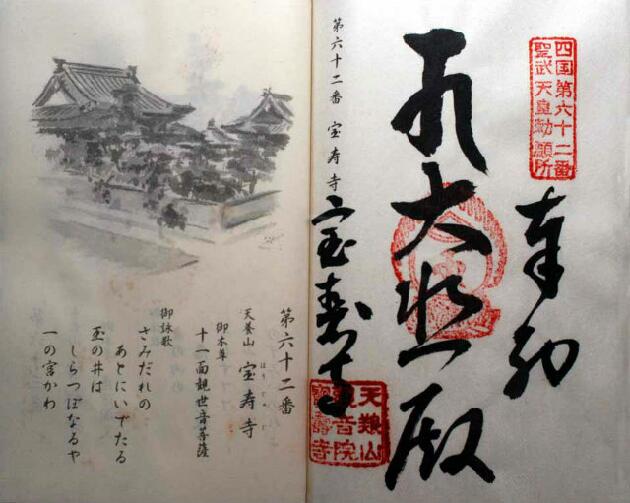 四国第六十二番
聖武天皇勅願所
奉納
大悲殿
宝寿寺
天養山
觀音院
寶壽寺
第六十二番 宝寿寺
第六十二番
天養山 宝寿寺
ほうじゅじ
御本尊
十一面観世音菩薩
御詠歌
さみだれの
あとにいでたる
玉の井は
しらつぼなるや
一の宮かわ